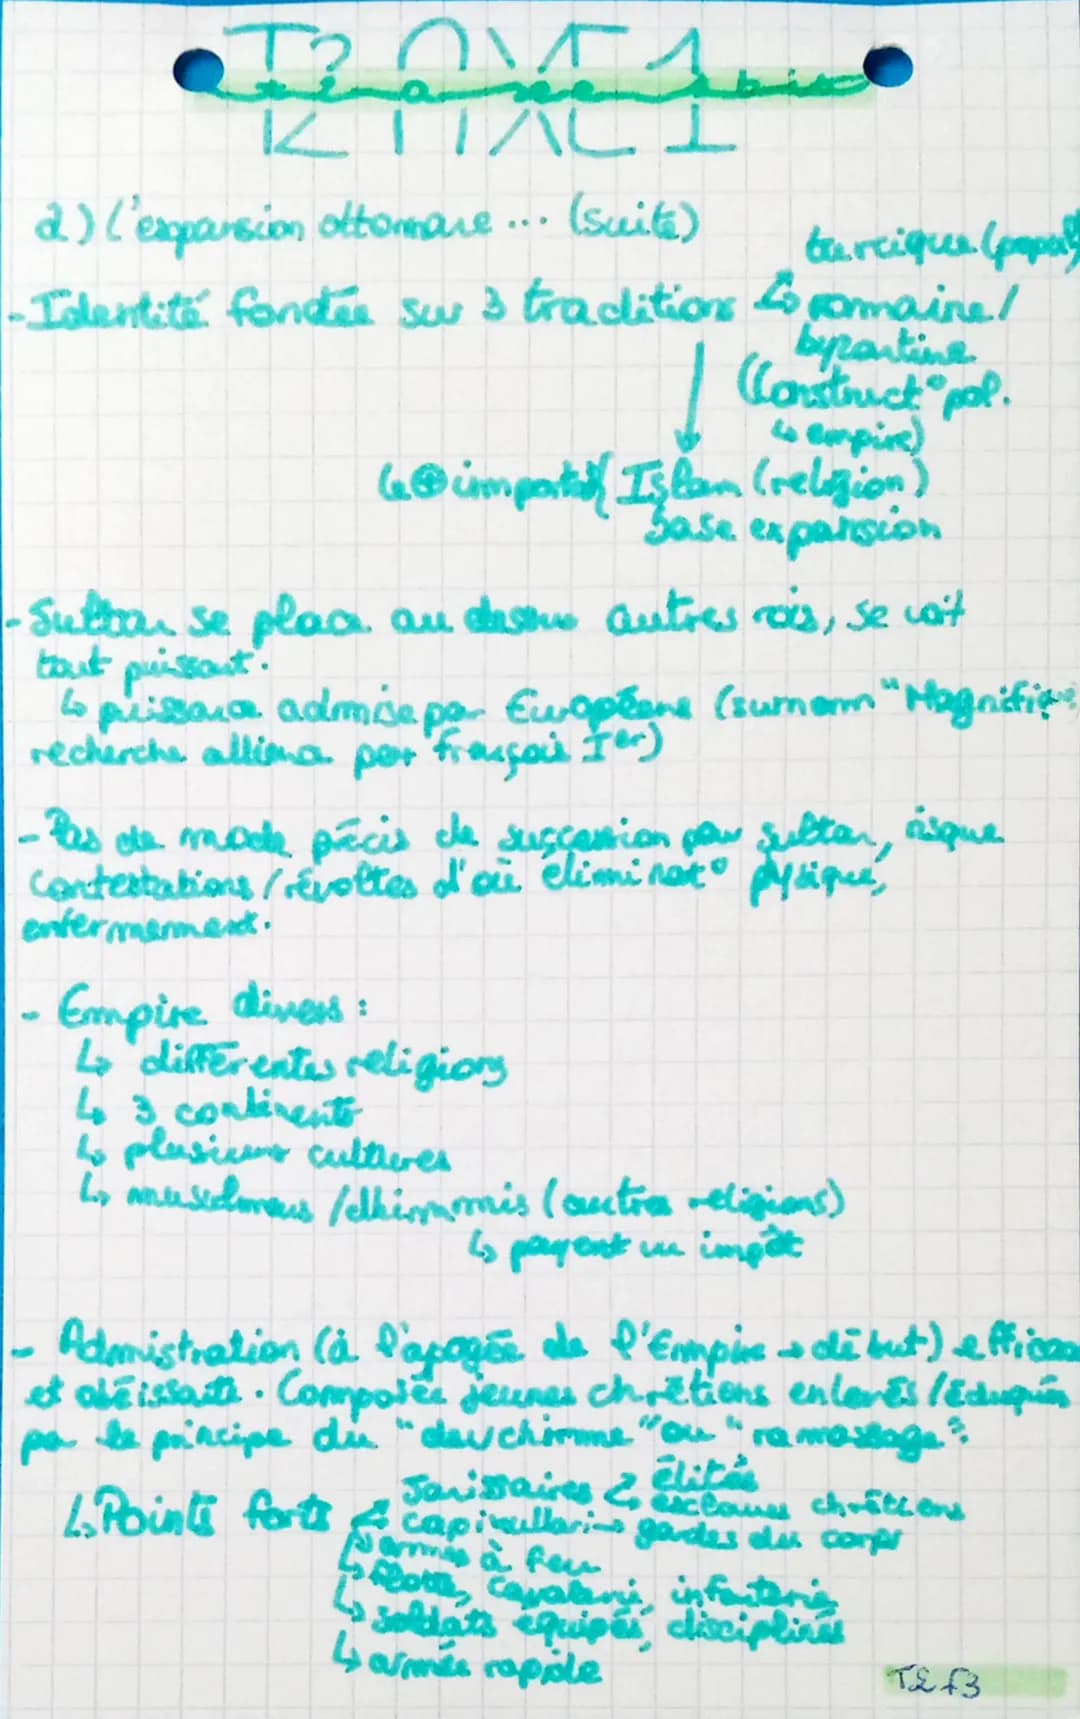 T2 AXE 1
2) l'expansion ottomane ... (suite)
turcique
- Identité fondée sur 3 traditions ↳ romaine/
byzantine
(Construct° pol.
↳ empire)
↳ ⊕ important Islam (religion)
base expansion
- Sultan se place au dessus autres rois, se voit
tout puissant.
↳ puissance admise par Européens (surnom "Magnifique"
recherche alliance par François Ier)
- Pas de mode précis de succession pour sultan, risque
contestations / révoltes d'où éliminat° pysique,
enfermement.
- Empire divers :
↳ différentes religions
↳ 3 continents
↳ plusieurs cultures
↳ musulmans / dhimmis (autres religions)
↳ payent un impôt
- Admistration (à l'apogée de l'Empire → début) efficace
et obéissante. Composée jeunes chrétiens enlevés / Eduqués
par le principe du "devchirme" ou "ramassage".
↳ Points forts
Janissaires élites
esclaves chrétiens
capikullari → gardes du corps
↳ armes à feu
↳ flotte, cavalerie, infanterie
↳ soldats équipés, disciplinés
↳ armée rapide
T2 f3